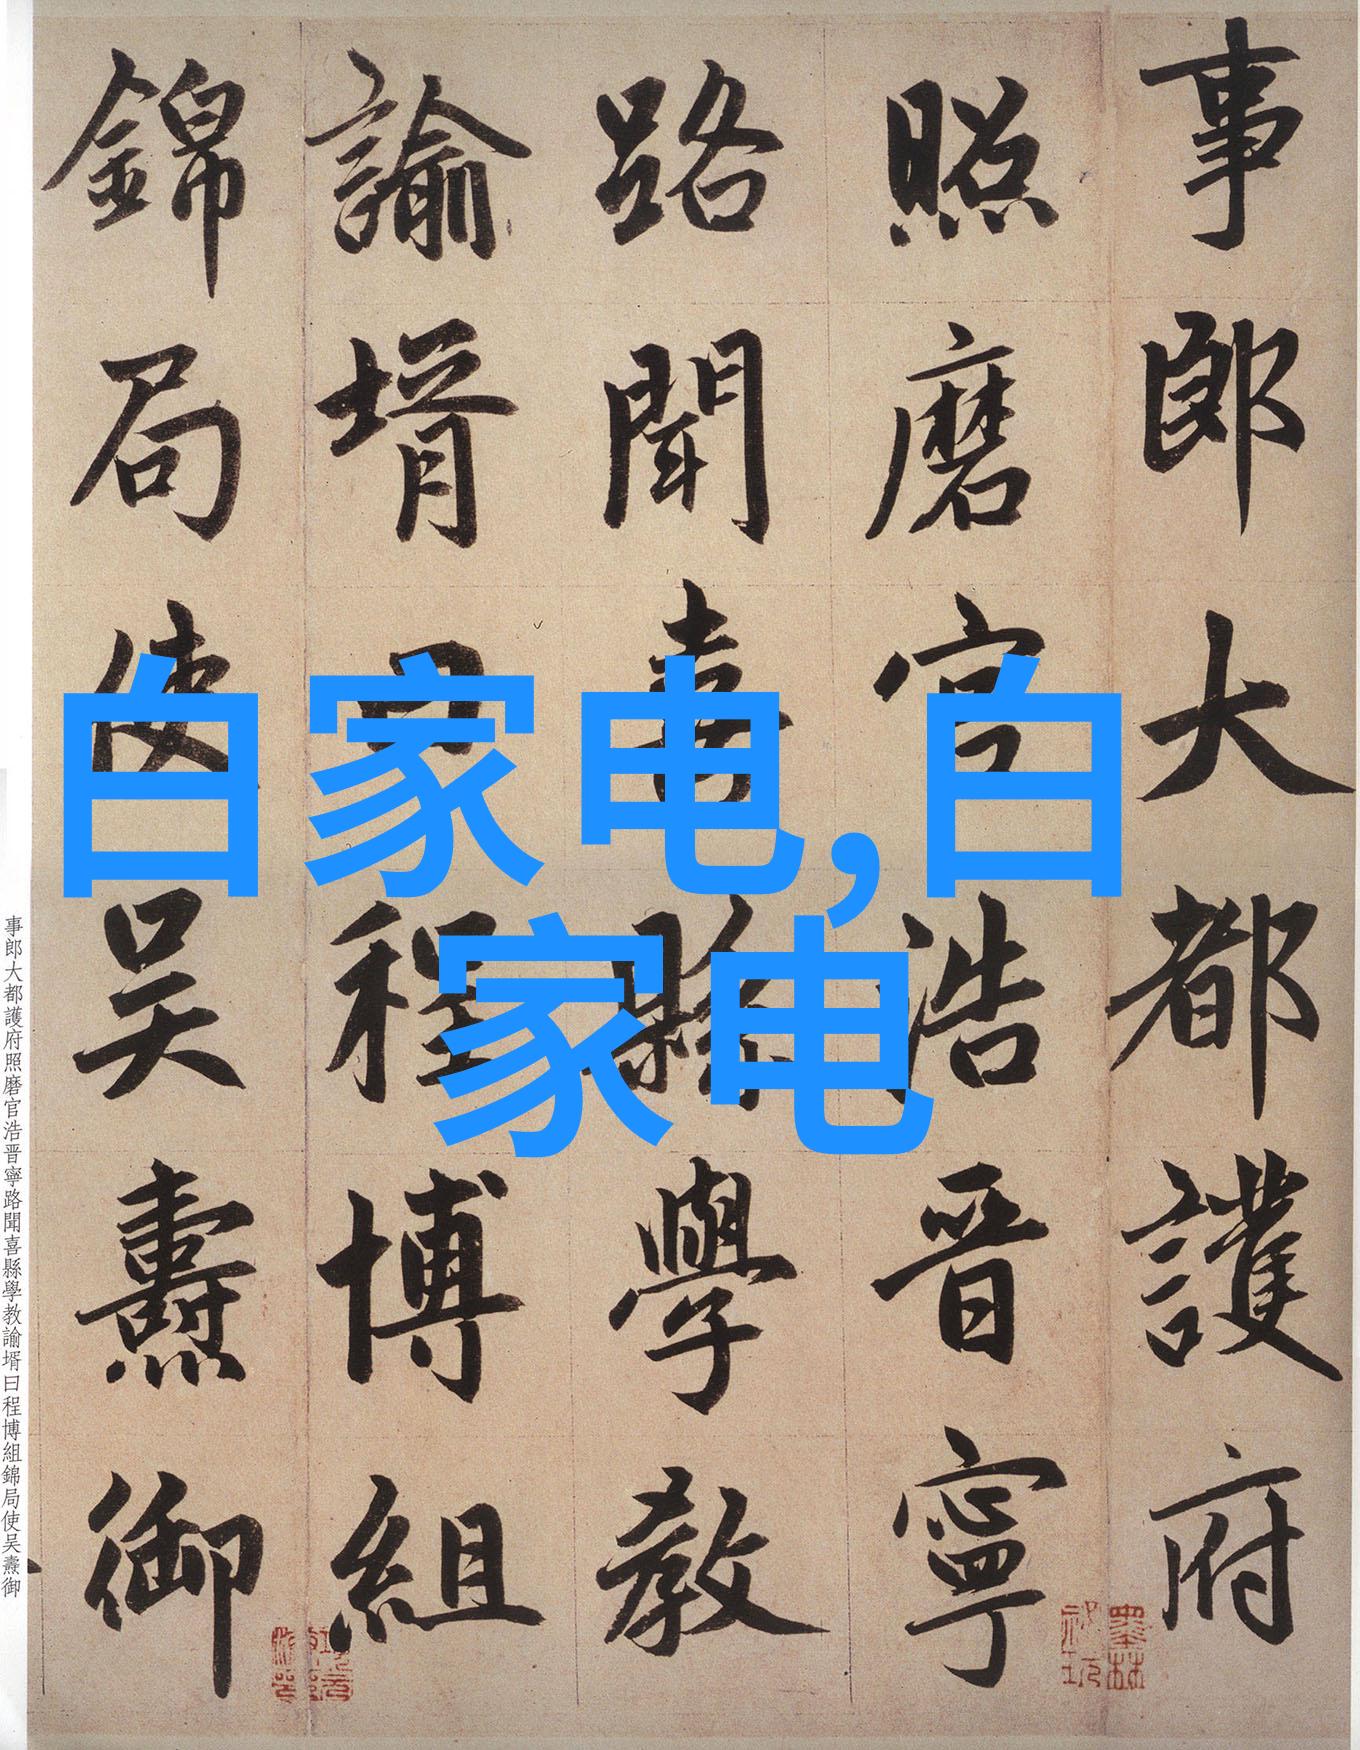 事郎大都護府
照磨官浩晋寧
路聞喜縣學教
諭壻曰程博組
錦局使吳燾御
白家电,白
家电
事郎大都護府照磨官浩晋寧路聞喜縣學教諭壻曰程博組錦局使吴燾御